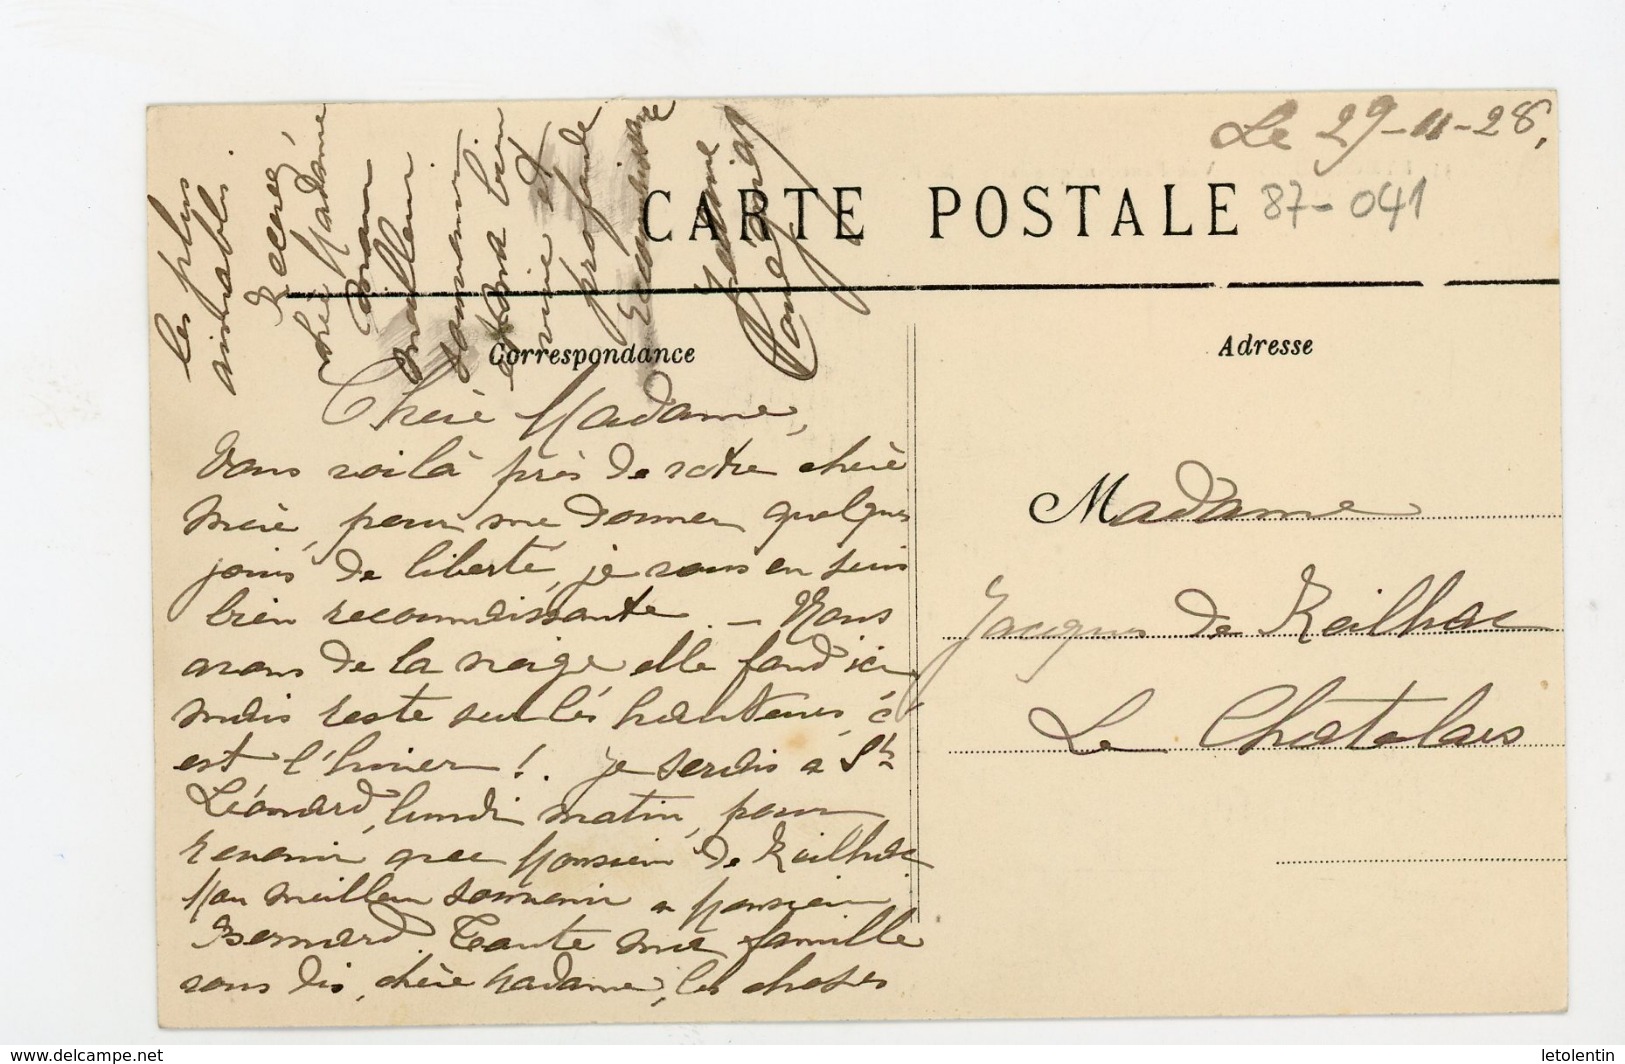 Le 29-11-28.
CARTE POSTALE
87-041
Correspondance
Adresse
Chère Madame,
Vous voilà près de votre chère
Mère, pour me donner quelques
jours de liberté, je vous en suis
bien reconnaissante. - Nous
avons de la neige elle fond ici
mais reste sur les hauteurs, c'
est l'hiver ! . je serais a St
Léonard, lundi matin, pour
revenir avec Monsieur de Reilhac
Mon meilleur souvenir a Monsieur
Bernard. Toute ma famille
vous dis, chère Madame, les choses
les plus
aimables.
Recevé,
chère Madame
mon
meilleur
souvenir
et ma bien
vive et
profonde
reconnaissance
Madame
Jacques de Reilhac
Le Chatelais